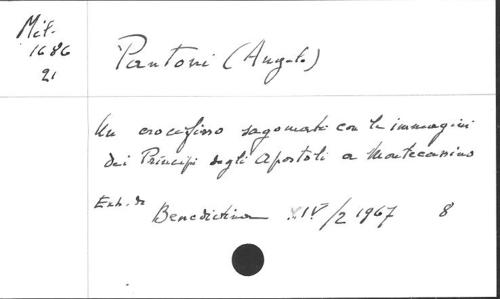 Mil.
1686
21
Pantoni (Angelo)
Un crocefisso sagomato con le immagini
dei Principi degli Apostoli a Montecassino
Extr. da
Benedictina XIV/2 1967 8